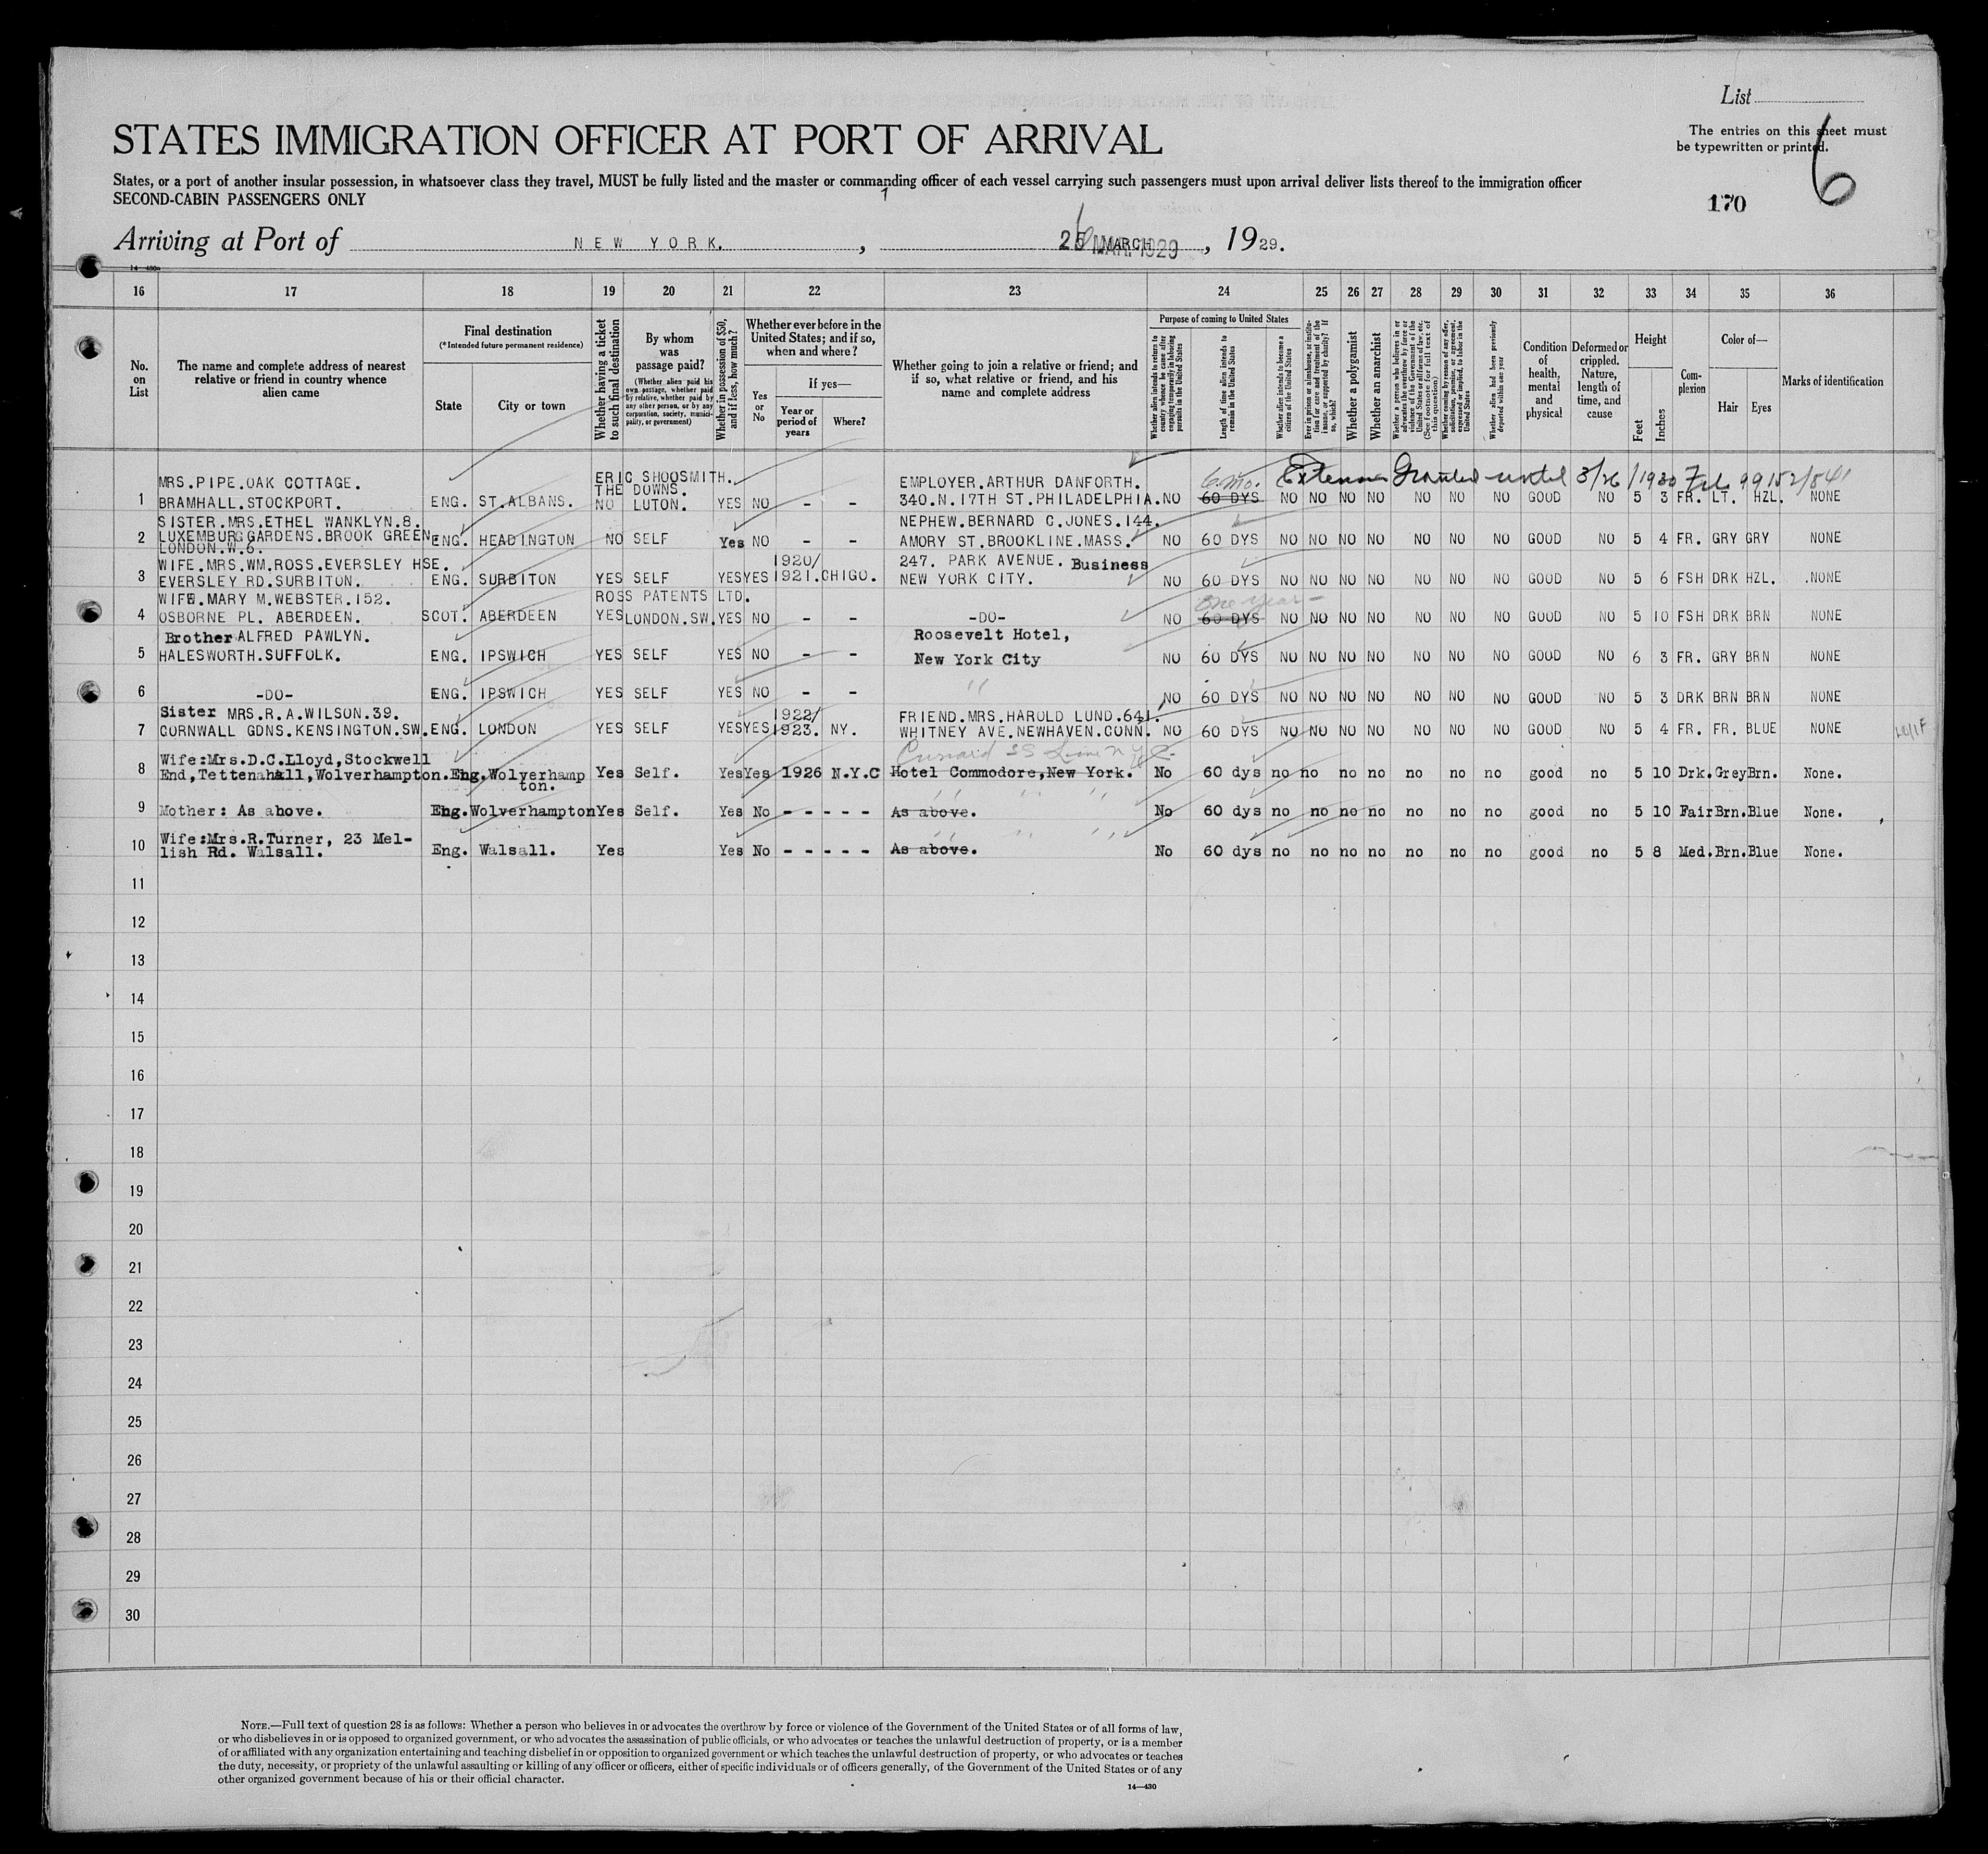 List
The entries on this sheet must
be typewritten or printed.
6
170
STATES IMMIGRATION OFFICER AT PORT OF ARRIVAL
States, or a port of another insular possession, in whatsoever class they travel, MUST be fully listed and the master or commanding officer of each vessel carrying such passengers must upon arrival deliver lists thereof to the immigration officer
SECOND-CABIN PASSENGERS ONLY
Arriving at Port of NEW YORK. , 26 MARCH MAR. 1929 , 1929.
14—430a
16 17 18 19 20 21 22 23 24 25 26 27 28 29 30 31 32 33 34 35 36
No. on List
The name and complete address of nearest relative or friend in country whence alien came
Final destination
(*Intended future permanent residence)
State
City or town
Whether having a ticket to such final destination
By whom was passage paid?
(Whether alien paid his own passage, whether paid by relative, whether paid by any other person, or by any corporation, society, municipality, or government)
Whether in possession of $50, and if less, how much?
Whether ever before in the United States; and if so, when and where?
Yes or No
If yes—
Year or period of years
Where?
Whether going to join a relative or friend; and if so, what relative or friend, and his name and complete address
Purpose of coming to United States
Whether alien intends to return to country whence he came after engaging temporarily in laboring pursuits in the United States
Length of time alien intends to remain in the United States
Whether alien intends to become a citizen of the United States
Ever in prison or almshouse, or institution for care and treatment of the insane, or supported by charity? If so, which?
Whether a polygamist
Whether an anarchist
Whether a person who believes in or advocates the overthrow by force or violence of the Government of the United States or all forms of law, etc. (See footnote for full text of this question)
Whether coming by reason of any offer, solicitation, promise, or agreement, expressed or implied, to labor in the United States
Whether alien had been previously deported within one year
Condition of health, mental and physical
Deformed or crippled. Nature, length of time, and cause
Height
Feet
Inches
Complexion
Color of—
Hair
Eyes
Marks of identification
6 mo. Extension Granted until 3/26/1930 99152/841
1 MRS.PIPE.OAK COTTAGE. BRAMHALL.STOCKPORT. ENG. ST.ALBANS. NO ERIC SHOOSMITH. THE DOWNS. LUTON. YES NO - - EMPLOYER.ARTHUR DANFORTH. 340.N.17TH ST.PHILADELPHIA. NO 60 DYS NO NO NO NO NO NO NO GOOD NO 5 3 FR. LT. HZL. NONE
2 SISTER.MRS.ETHEL WANKLYN.8. LUXEMBURG GARDENS.BROOK GREEN LONDON.W.6. ENG. HEADINGTON NO SELF Yes NO - - NEPHEW.BERNARD C.JONES.144. AMORY ST.BROOKLINE.MASS. NO 60 DYS NO NO NO NO NO NO NO GOOD NO 5 4 FR. GRY GRY NONE
3 WIFE.MRS.WM.ROSS.EVERSLEY HSE. EVERSLEY RD.SURBITON. ENG. SURBITON YES SELF YES YES 1920/ 1921. CHIGO. 247. PARK AVENUE. Business NEW YORK CITY. NO 60 DYS NO NO NO NO NO NO NO GOOD NO 5 6 FSH DRK HZL. NONE
4 WIFE.MARY M.WEBSTER.152. OSBORNE PL. ABERDEEN. SCOT. ABERDEEN YES ROSS PATENTS LTD. LONDON.SW. YES NO - - -DO- NO One year- 60 DYS NO NO NO NO NO NO NO GOOD NO 5 10 FSH DRK BRN NONE
5 Brother ALFRED PAWLYN. HALESWORTH.SUFFOLK. ENG. IPSWICH YES SELF YES NO - - Roosevelt Hotel, New York City NO 60 DYS NO NO NO NO NO NO NO GOOD NO 6 3 FR. GRY BRN NONE
6 -DO- ENG. IPSWICH YES SELF YES NO - - " NO 60 DYS NO NO NO NO NO NO NO GOOD NO 5 3 DRK BRN BRN NONE
7 Sister MRS.R.A.WILSON.39. CORNWALL GDNS.KENSINGTON.SW. ENG. LONDON YES SELF YES YES 1922/ 1923. NY. FRIEND.MRS.HAROLD LUND.641. WHITNEY AVE.NEWHAVEN.CONN. NO 60 DYS NO NO NO NO NO NO NO GOOD NO 5 4 FR. FR. BLUE NONE
8 Wife:Mrs.D.C.Lloyd,Stockwell End,Tettenahall,Wolverhampton. Eng. Wolverhampton. Yes Self. Yes Yes 1926 N.Y.C Cunard SS Line N.Y.C. Hotel Commodore,New York. No 60 dys no no no no no no no good no 5 10 Drk. Grey Brn. None.
9 Mother: As above. Eng. Wolverhampton Yes Self. Yes No - - - - - As above. No 60 dys no no no no no no no good no 5 10 Fair Brn. Blue None.
10 Wife:Mrs.R.Turner, 23 Mellish Rd. Walsall. Eng. Walsall. Yes Yes No - - - - - As above. No 60 dys no no no no no no no good no 5 8 Med. Brn. Blue None.
11
12
13
14
15
16
17
18
19
20
21
22
23
24
25
26
27
28
29
30
NOTE.—Full text of question 28 is as follows: Whether a person who believes in or advocates the overthrow by force or violence of the Government of the United States or of all forms of law,
or who disbelieves in or is opposed to organized government, or who advocates the assassination of public officials, or who advocates or teaches the unlawful destruction of property, or is a member
of or affiliated with any organization entertaining and teaching disbelief in or opposition to organized government or which teaches the unlawful destruction of property, or who advocates or teaches
the duty, necessity, or propriety of the unlawful assaulting or killing of any officer or officers, either of specific individuals or of officers generally, of the Government of the United States or of any
other organized government because of his or their official character.
14—430